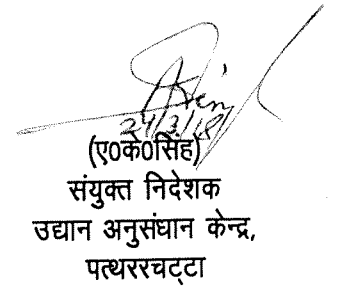 24/3/18
(ए0के0सिंह)
संयुक्त निदेशक
उद्यान अनुसंधान केन्द्र,
पत्थररचट्टा